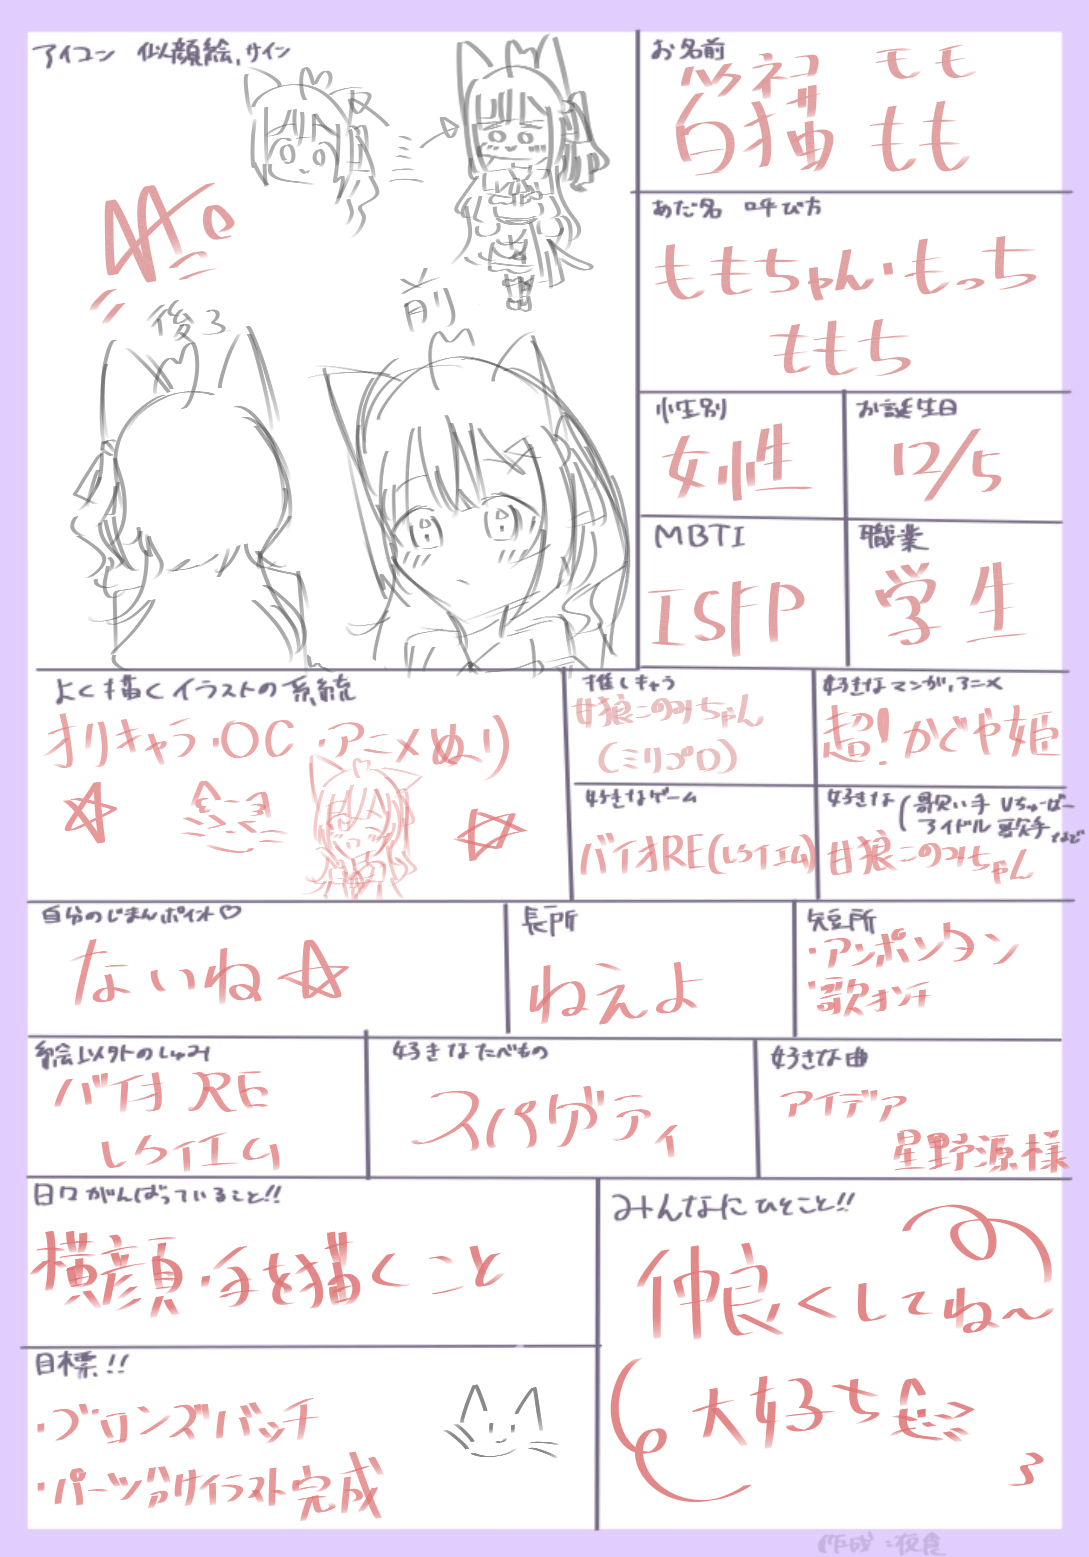 アイコン 似顔絵,サイン
後ろ
前
お名前
シロネコ モモ
白猫 もも
あだ名 呼び方
ももちゃん・もっち
ももち
性別
女性
お誕生日
12/5
MBTI
ISFP
職業
学生
よく描くイラストの系統
オリキャラ・OC・アニメぬり
推しキャラ
甘狼このみちゃん
(ミリプロ)
好きなマンガ,アニメ
超!かぐや姫
好きなゲーム
バイオRE(レクイエム)
好きな(歌い手 Vちゅーばー
アイドル 歌手 など
甘狼このみちゃん
自分のじまんポイント♡
ないね☆
長所
ねえよ
短所
・アンポンタン
・歌オンチ
絵以外のしゅみ
バイオ RE
レクイエム
好きなたべもの
スパゲティ
好きな曲
アイデア
星野源様
日々がんばっていること!!
横顔・手を描くこと
みんなにひとこと!!
仲良くしてね〜
大好ち
目標!!
・ブロンズバッチ
・パーツ分けイラスト完成
作成:夜食